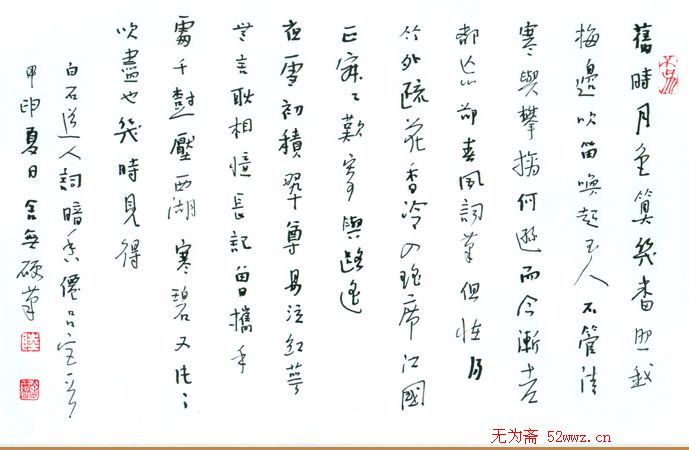 舊時月色算幾番照我
梅邊吹笛喚起玉人不管清
寒與攀摘何遜而今漸老
都忘卻春風詞筆但怪得
竹外疏花香冷入瑤席江國
正寂寂歎寄與路遙
夜雪初積翠尊易泣紅萼
無言耿相憶長記曾攜手
處千樹壓西湖寒碧又片片
吹盡也幾時見得
白石道人詞暗香僊呂宮一首
甲申夏日無硬筆
无为斋 52wwz.cn